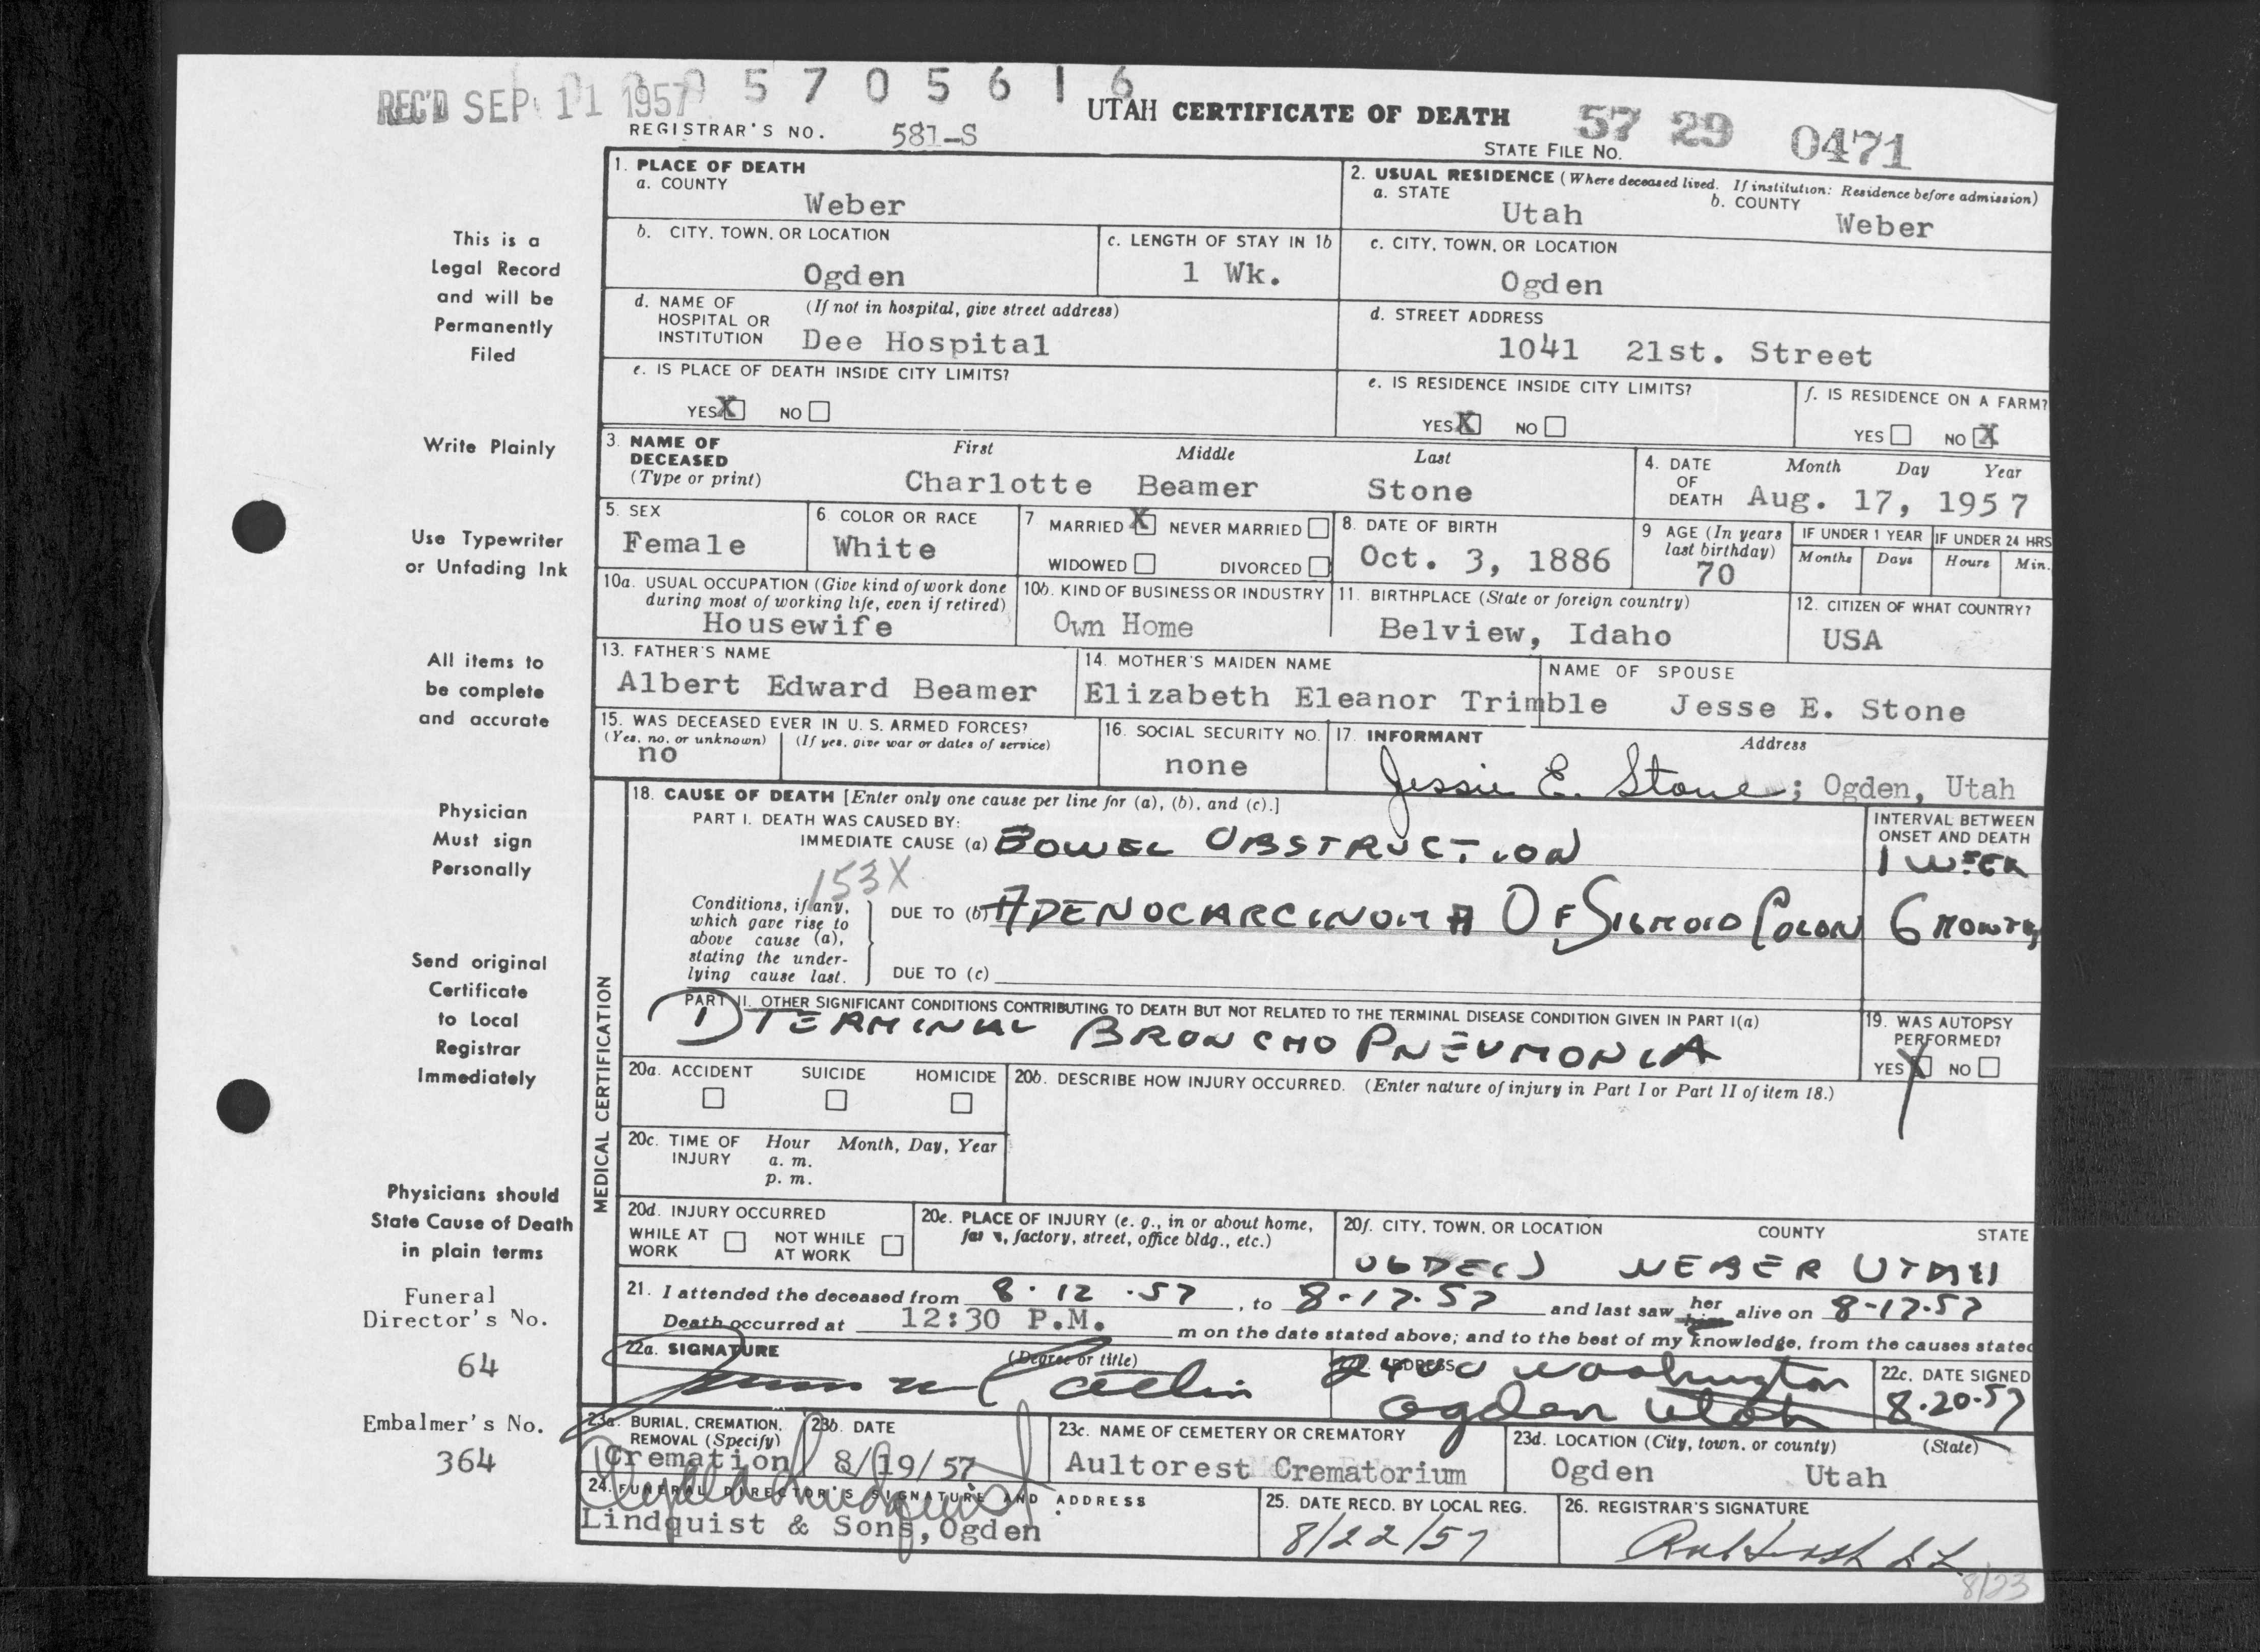 REC'D SEP 11 1957
5 7 0 5 6 1 6
UTAH CERTIFICATE OF DEATH
57 29 0471
REGISTRAR'S NO. 581-S
STATE FILE NO.
1. PLACE OF DEATH
a. COUNTY
Weber
2. USUAL RESIDENCE (Where deceased lived. If institution: Residence before admission)
a. STATE
Utah
b. COUNTY
Weber
b. CITY, TOWN, OR LOCATION
Ogden
c. LENGTH OF STAY IN 1b
1 Wk.
c. CITY, TOWN, OR LOCATION
Ogden
d. NAME OF HOSPITAL OR INSTITUTION
(If not in hospital, give street address)
Dee Hospital
d. STREET ADDRESS
1041 21st. Street
e. IS PLACE OF DEATH INSIDE CITY LIMITS?
YES X NO
e. IS RESIDENCE INSIDE CITY LIMITS?
YES X NO
f. IS RESIDENCE ON A FARM?
YES NO X
3. NAME OF DECEASED (Type or print)
First Middle Last
Charlotte Beamer Stone
4. DATE OF DEATH
Month Day Year
Aug. 17, 1957
5. SEX
Female
6. COLOR OR RACE
White
7 MARRIED X NEVER MARRIED
WIDOWED DIVORCED
8. DATE OF BIRTH
Oct. 3, 1886
9 AGE (In years last birthday)
70
IF UNDER 1 YEAR
Months Days
IF UNDER 24 HRS
Hours Min.
10a. USUAL OCCUPATION (Give kind of work done during most of working life, even if retired)
Housewife
10b. KIND OF BUSINESS OR INDUSTRY
Own Home
11. BIRTHPLACE (State or foreign country)
Belview, Idaho
12. CITIZEN OF WHAT COUNTRY?
USA
13. FATHER'S NAME
Albert Edward Beamer
14. MOTHER'S MAIDEN NAME
Elizabeth Eleanor Trimble
NAME OF SPOUSE
Jesse E. Stone
15. WAS DECEASED EVER IN U. S. ARMED FORCES?
(Yes, no, or unknown) (If yes, give war or dates of service)
no
16. SOCIAL SECURITY NO.
none
17. INFORMANT Address
Jessie E. Stone; Ogden, Utah
18. CAUSE OF DEATH [Enter only one cause per line for (a), (b), and (c).]
PART I. DEATH WAS CAUSED BY:
IMMEDIATE CAUSE (a) BOWEL OBSTRUCTION
INTERVAL BETWEEN ONSET AND DEATH
1 WEEK
153X
Conditions, if any, which gave rise to above cause (a), stating the underlying cause last.
DUE TO (b) ADENOCARCINOMA OF SIGMOID COLON 6 MONTHS
DUE TO (c)
PART II. OTHER SIGNIFICANT CONDITIONS CONTRIBUTING TO DEATH BUT NOT RELATED TO THE TERMINAL DISEASE CONDITION GIVEN IN PART I(a)
1) TERMINAL BRONCHO PNEUMONIA
19. WAS AUTOPSY PERFORMED?
YES X NO
MEDICAL CERTIFICATION
20a. ACCIDENT SUICIDE HOMICIDE
20b. DESCRIBE HOW INJURY OCCURRED. (Enter nature of injury in Part I or Part II of item 18.)
20c. TIME OF INJURY
Hour Month, Day, Year
a. m.
p. m.
20d. INJURY OCCURRED
WHILE AT WORK NOT WHILE AT WORK
20e. PLACE OF INJURY (e. g., in or about home, factory, street, office bldg., etc.)
20f. CITY, TOWN, OR LOCATION COUNTY STATE
OGDEN WEBER UTAH
21. I attended the deceased from 8-12-57, to 8-17-57 and last saw her him alive on 8-17-57
Death occurred at 12:30 P.M. m on the date stated above; and to the best of my knowledge, from the causes stated
22a. SIGNATURE (Degree or title)
ADDRESS
2400 Washington
Ogden Utah
22c. DATE SIGNED
8-20-57
23a. BURIAL, CREMATION, REMOVAL (Specify)
Cremation
23b. DATE
8/19/57
23c. NAME OF CEMETERY OR CREMATORY
Aultorest Crematorium
23d. LOCATION (City, town, or county) (State)
Ogden Utah
24. FUNERAL DIRECTOR'S SIGNATURE AND ADDRESS
Lindquist & Sons, Ogden
25. DATE RECD. BY LOCAL REG.
8/22/57
26. REGISTRAR'S SIGNATURE
8/23
This is a
Legal Record
and will be
Permanently
Filed
Write Plainly
Use Typewriter
or Unfading Ink
All items to
be complete
and accurate
Physician
Must sign
Personally
Send original
Certificate
to Local
Registrar
Immediately
Physicians should
State Cause of Death
in plain terms
Funeral
Director's No.
64
Embalmer's No.
364